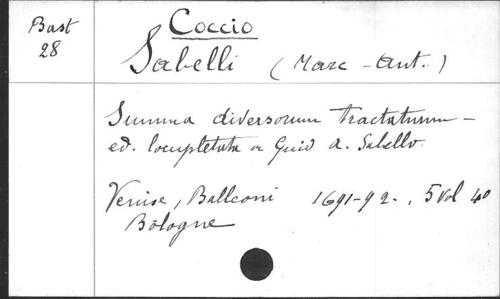 Bast
28
Coccio
Sabelli (Marc-Ant.)
Summa diversorum tractatuum -
ed. locupletata a Guid a. Sabello.
Venise, Balleoni 1691-92., 5 vol 4o
Bologne